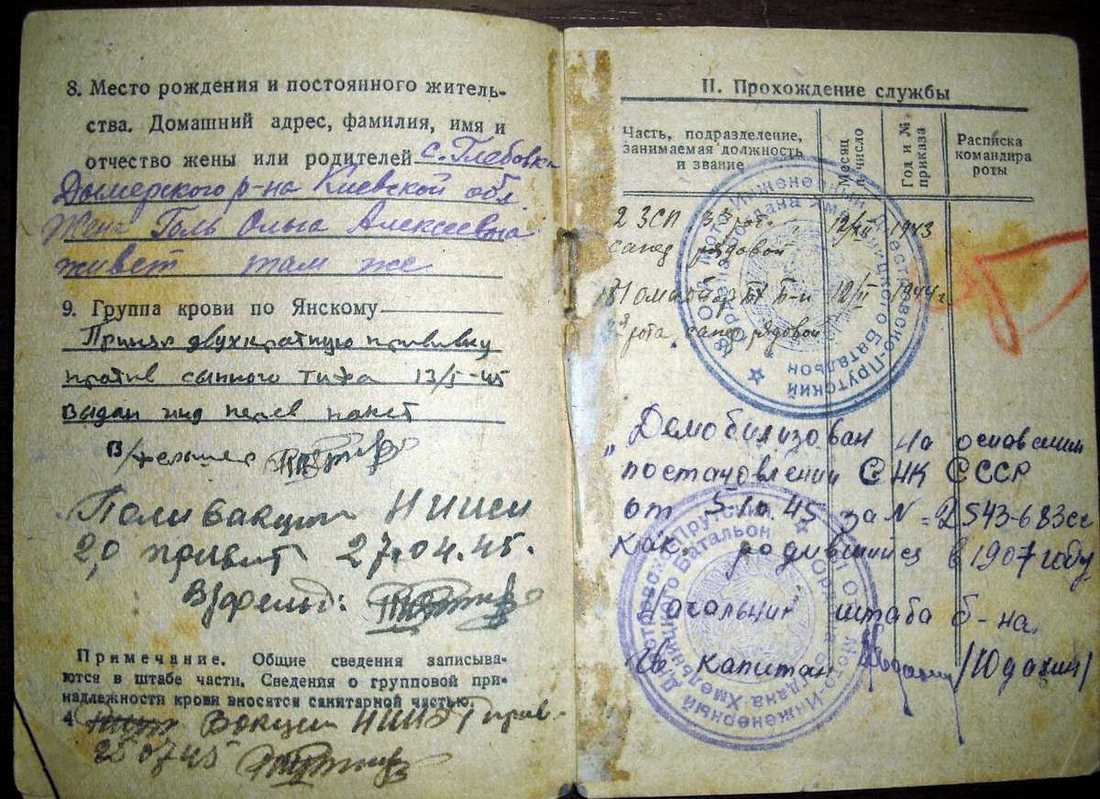 8. Место рождения и постоянного житель-
ства. Домашний адрес, фамилия, имя и
отчество жены или родителей с. Глебовка
Дымерского р-на Киевской обл.
Жена Голь Ольга Алексеевна
живет там же
9. Группа крови по Янскому
Принял двухкратную прививку
против сыпного тифа 13/5-45
Выдан инд перев пакет
В/фельшер
Поливакцин НИИСИ
2,0 привит 27.04.45.
В/фельд:
Примечание. Общие сведения записыва-
ются в штабе части. Сведения о групповой при-
надлежности крови вносятся санитарной частью.
4
Вакцин
250745
II. Прохождение службы
Часть, подразделение,
занимаемая должность
и звание
Месяц
и число
Год и №
приказа
Расписка
командира
роты
2 ЗСП 12/III 1943
сапер рядовой
12/II 1944г
рота сапер рядовой
„Демобилизован на основании
постановлении СНК СССР
от 5/10.45 за N=2543-683сс
как родившийся в 1907 году
Начальник штаба б-на
Гв. капитан /Юдахин/